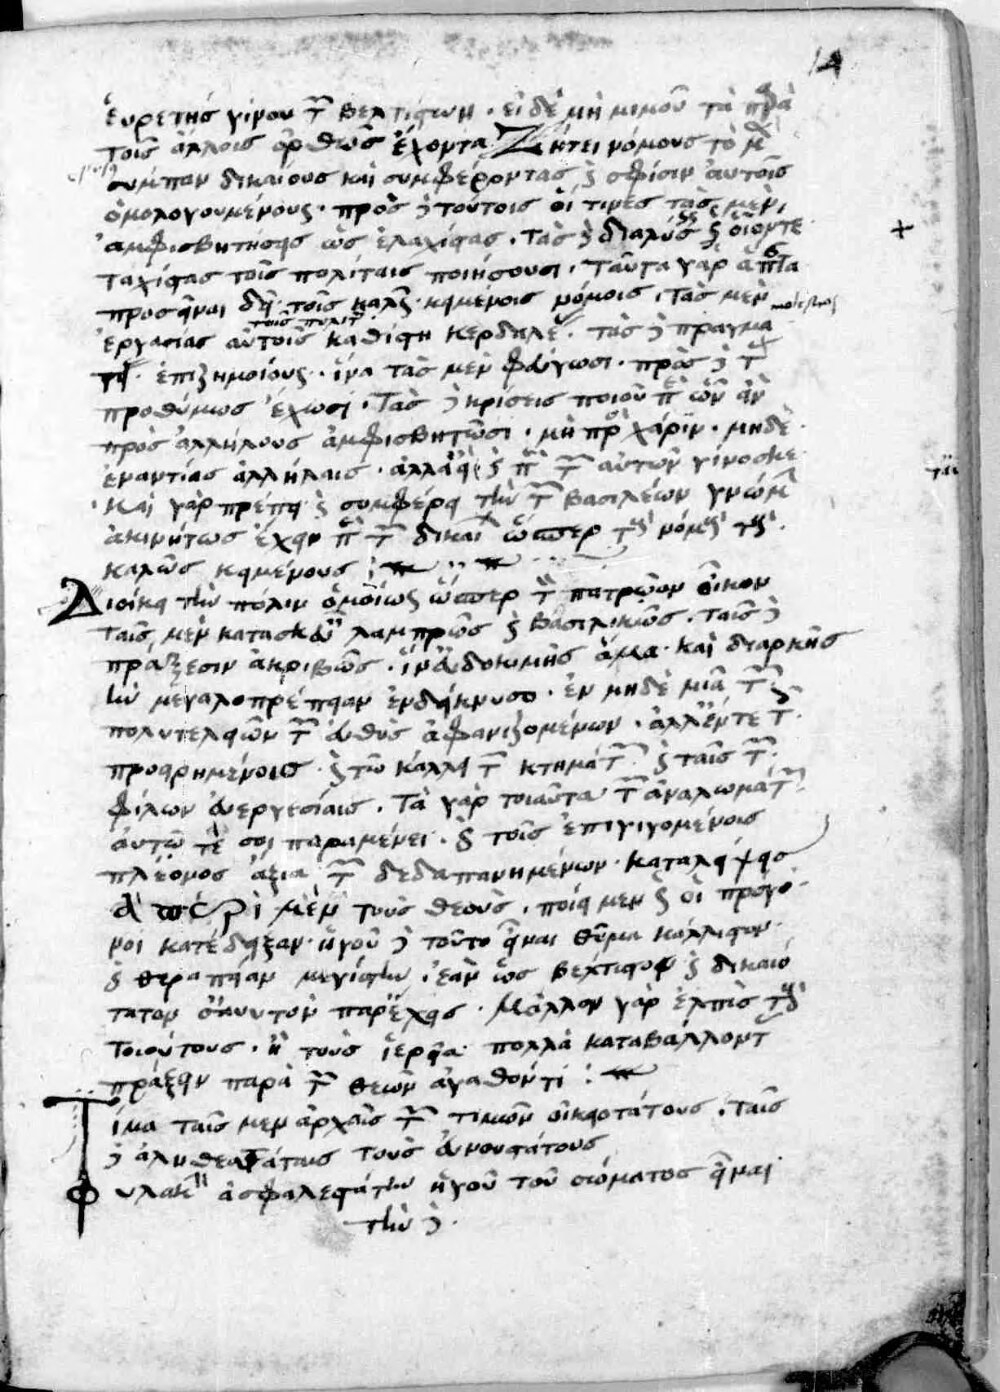 14
εὑρετὴς γίνου τῶν βελτίστων · εἰ δὲ μὴ μιμοῦ τὰ παρὰ
τοῖς ἄλλοις ὀρθῶς ἔχοντα Ζήτει νόμους τὸ μὲν
σύμπαν δικαίους καὶ συμφέροντας καὶ σφίσιν αὐτοῖς
ὁμολογουμένους · πρὸς δὲ τούτοις οἵ τινες τὰς μὲν
ἀμφισβητήσεις ὡς ἐλαχίστας · τὰς δὲ διαλύσεις ὡς οἷόν τε
ταχίστας τοῖς πολίταις ποιήσουσι · ταῦτα γὰρ ἅπαντα
προσεῖναι δεῖ τοῖς καλῶς κειμένοις νόμοις · τὰς μὲν
τοῖς πολίταις
ἐργασίας αὐτοῖς καθίστη κερδαλέας · τὰς δὲ πραγμα
τείας ἐπιζημίους · ἵνα τὰς μὲν φεύγωσι · πρὸς δὲ τὰς
προθύμως ἔχωσι · τὰς δὲ κρίσεις ποιοῦ περὶ ὧν ἂν
πρὸς ἀλλήλους ἀμφισβητῶσι · μὴ πρὸς χάριν · μηδὲ
ἐναντίας ἀλλήλαις · ἀλλ' ἀεὶ ταὐτὰ περὶ τῶν αὐτῶν γίνωσκε
καὶ γὰρ πρέπει καὶ συμφέρει τὴν τῶν βασιλέων γνώμην
ἀκινήτως ἔχειν περὶ τῶν δικαίων ὥσπερ τοὺς νόμους τοὺς
καλῶς κειμένους :
Διοίκει τὴν πόλιν ὁμοίως ὥσπερ τὸν πατρῷον οἶκον
ταῖς μὲν κατασκευαῖς λαμπρῶς καὶ βασιλικῶς · ταῖς δὲ
πράξεσιν ἀκριβῶς · ἵν' εὐδοκιμῇς ἅμα καὶ διαρκῇς
τὴν μεγαλοπρέπειαν ἐνδείκνυσο · ἐν μηδὲ μιᾷ τῶν
πολυτελειῶν τῶν εὐθὺς ἀφανιζομένων · ἀλλ' ἔν τε τοῖς
προειρημένοις καὶ τῷ κάλλει τῶν κτημάτων καὶ ταῖς τῶν
φίλων εὐεργεσίαις · τὰ γὰρ τοιαῦτα τῶν ἀναλωμάτων
αὐτῷ τέ σοι παραμένει · καὶ τοῖς ἐπιγιγομένοις
πλέονος ἄξια τῶν δεδαπανημένων καταλείψεις
τὰ περὶ μὲν τοὺς θεοὺς · ποίει μὲν ὡς οἱ πρόγο
νοι κατέδειξαν · ἡγοῦ δὲ τοῦτο εἶναι θῦμα κάλλιστον
καὶ θεραπείαν μεγίστην · ἐὰν ὡς βέλτιστον καὶ δικαιό
τατον σαυτὸν παρέχῃς · μᾶλλον γὰρ ἐλπὶς τοὺς
τοιούτους · ἢ τοὺς ἱερεῖα πολλὰ καταβάλλοντας
πράξειν παρὰ τῶν θεῶν ἀγαθόν τι :
Τίμα ταῖς μὲν ἀρχαῖς τῶν τιμῶν οἰκειοτάτους · ταῖς
δὲ ἀληθεστάταις τοὺς εὐνουστάτους
Φυλακὴν ἀσφαλεστάτην ἡγοῦ τοῦ σώματος εἶναι
τὴν δὲ ·